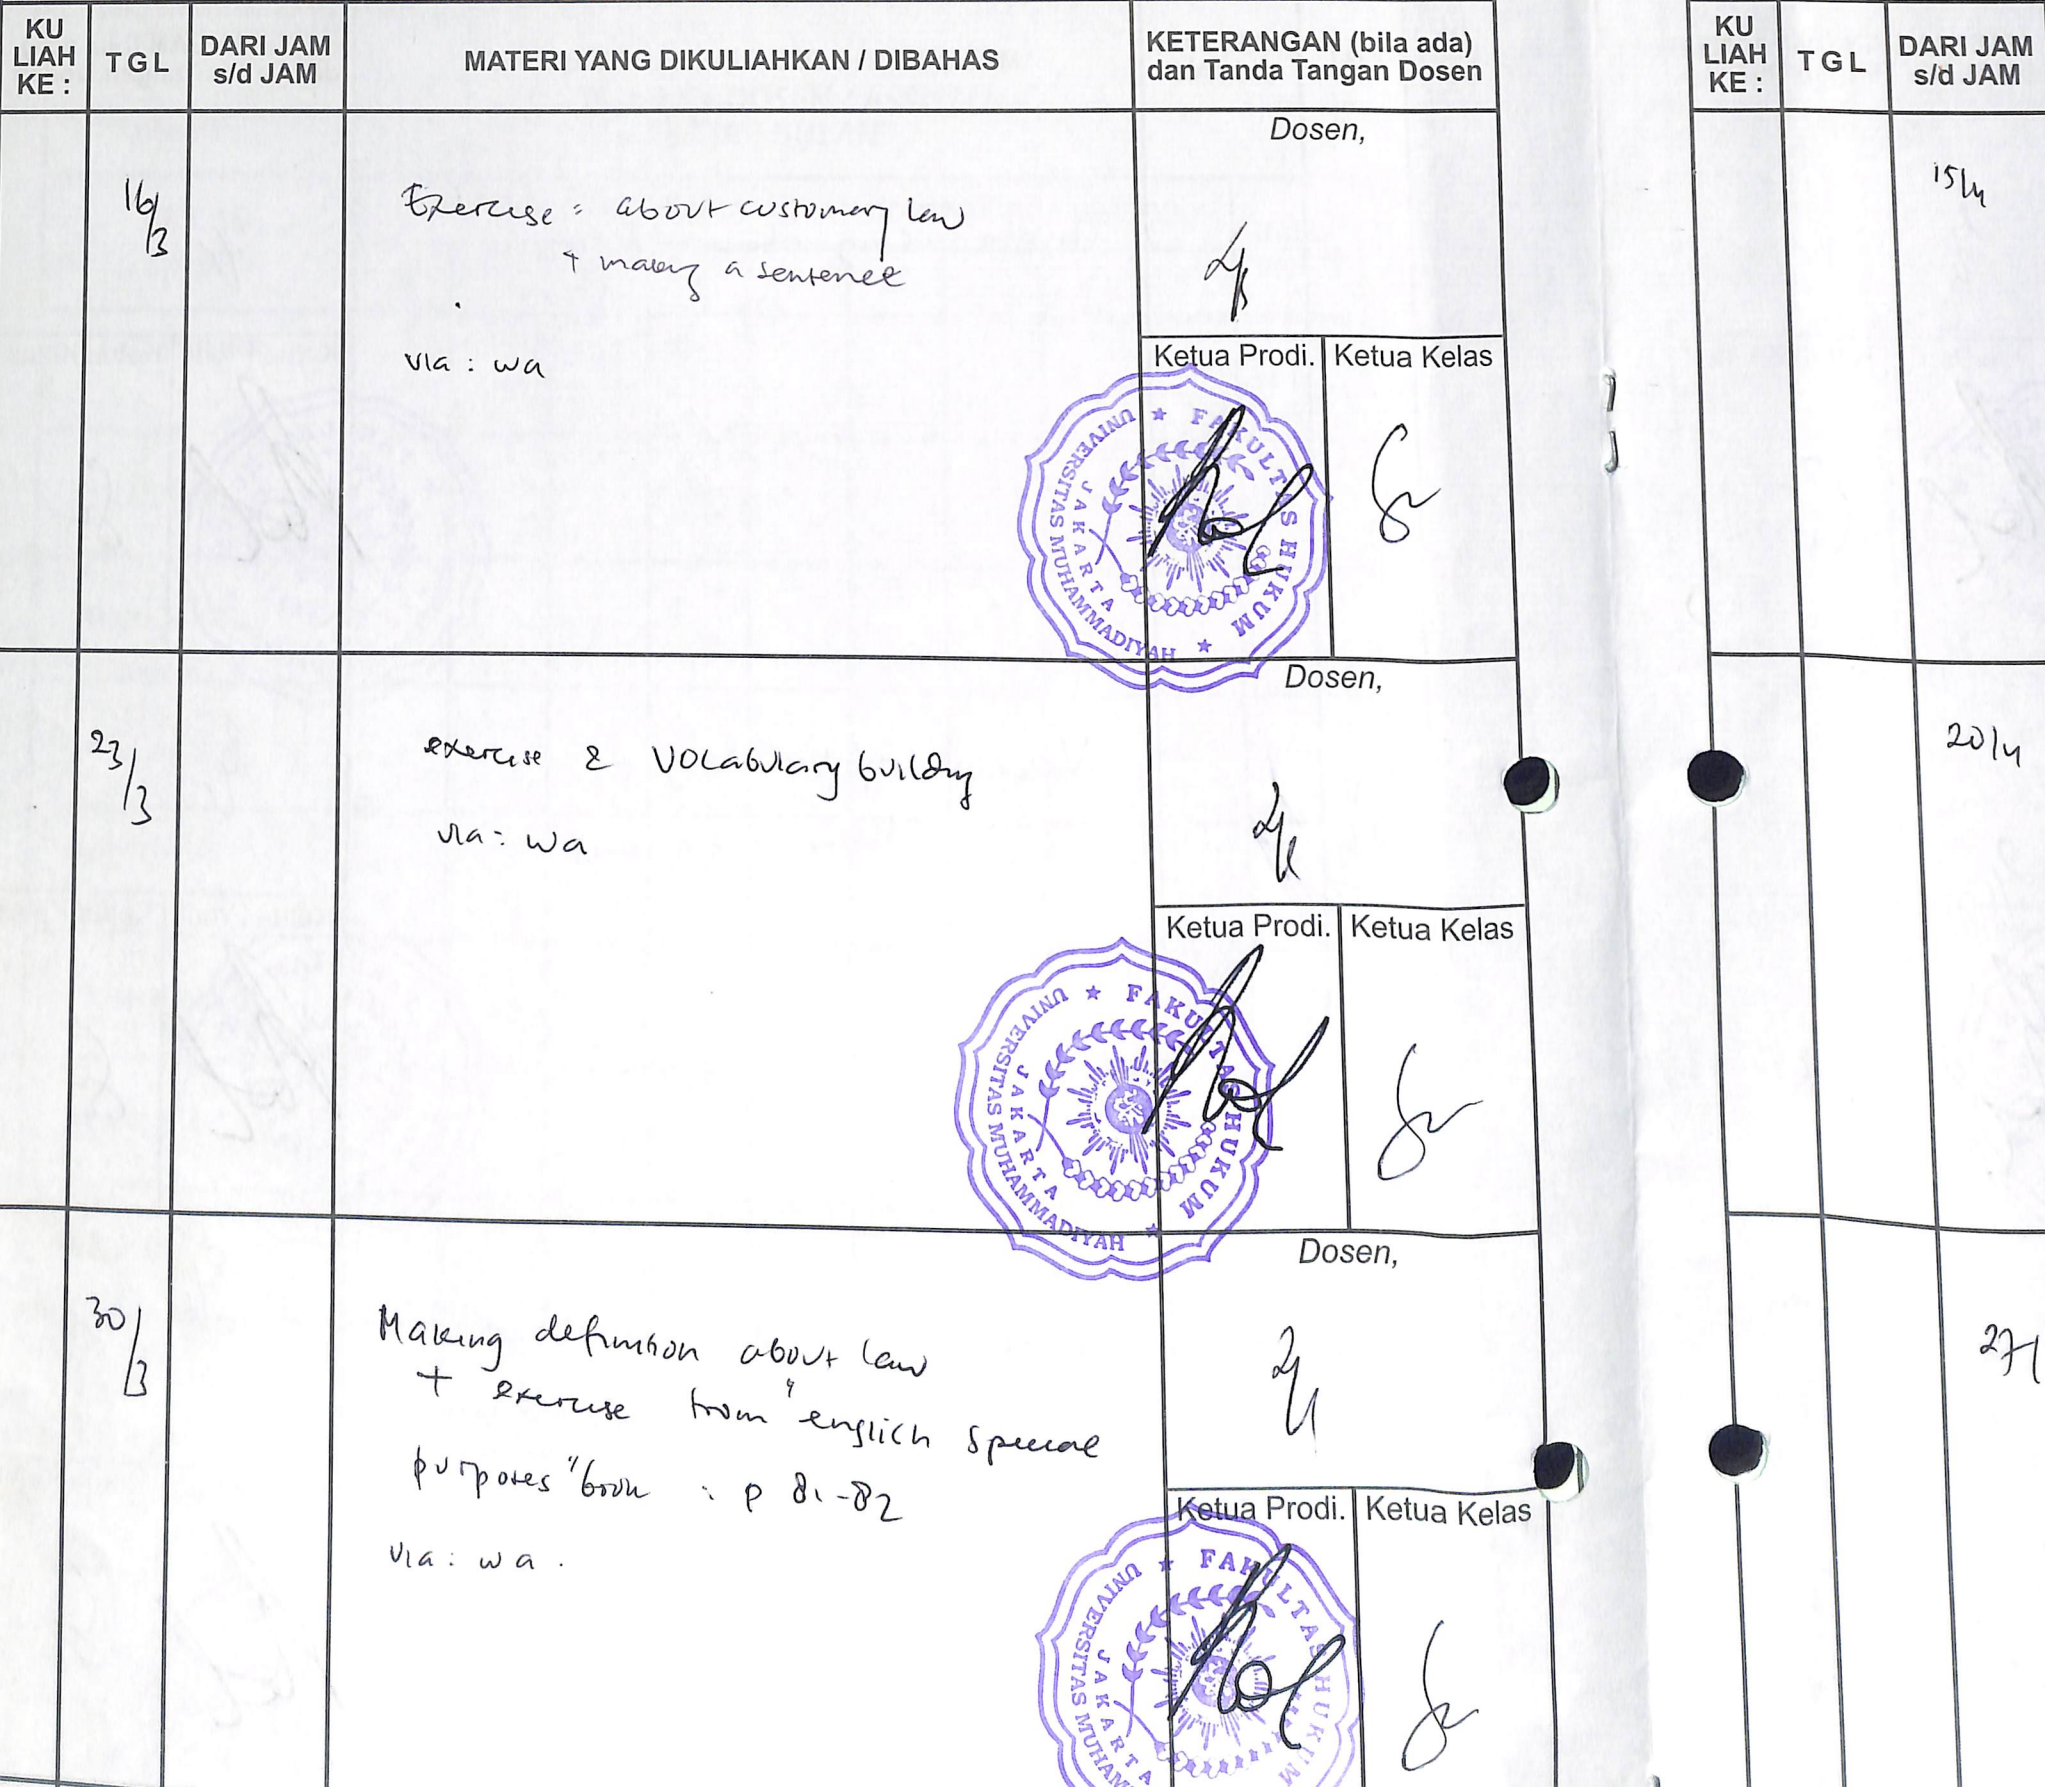 KU
LIAH
KE :
TGL
DARI JAM
s/d JAM
MATERI YANG DIKULIAHKAN / DIBAHAS
KETERANGAN (bila ada)
dan Tanda Tangan Dosen
16/3
Exercise : about customary law
+ making a sentence
via : wa
Dosen,
Ketua Prodi.
Ketua Kelas
UNIVERSITAS MUHAMMADIYAH
JAKARTA
FAKULTAS HUKUM
23/3
exercise & vocabulary building
via : wa
Dosen,
Ketua Prodi.
Ketua Kelas
UNIVERSITAS MUHAMMADIYAH
JAKARTA
FAKULTAS HUKUM
30/3
Making definition about law
+ exercise from "english special
purposes" book : p 81-82
via : wa .
Dosen,
Ketua Prodi.
Ketua Kelas
UNIVERSITAS MUHAM
JAKARTA
FAKULTAS HUKUM
KU
LIAH
KE :
TGL
DARI JAM
s/d JAM
15/4
20/4
27/